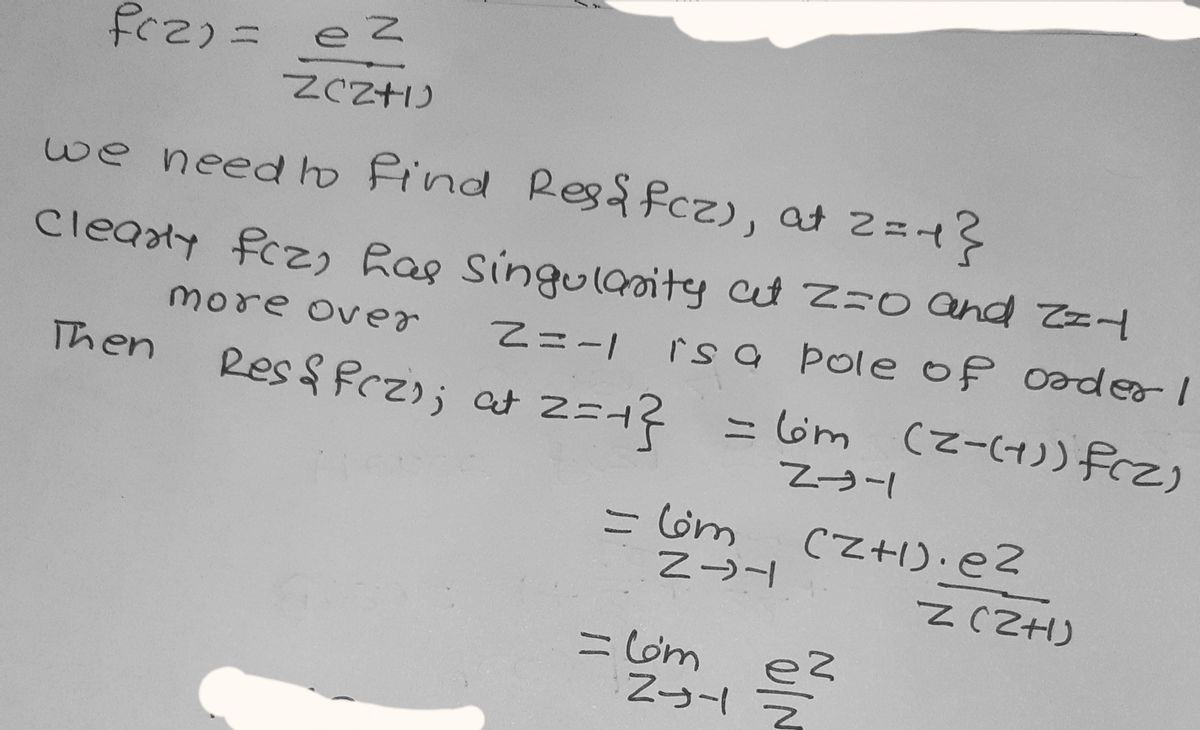 f(z) = e^z / z(z+1)
we need to find Res{f(z), at z=-1}
Clearly f(z) has singularity at z=0 and z=-1
more over z=-1 is a pole of order 1
Then Res{f(z); at z=-1} = lim z→-1 (z-(-1)) f(z)
= lim z→-1 (z+1).e^z / z(z+1)
= lim z→-1 e^z / z